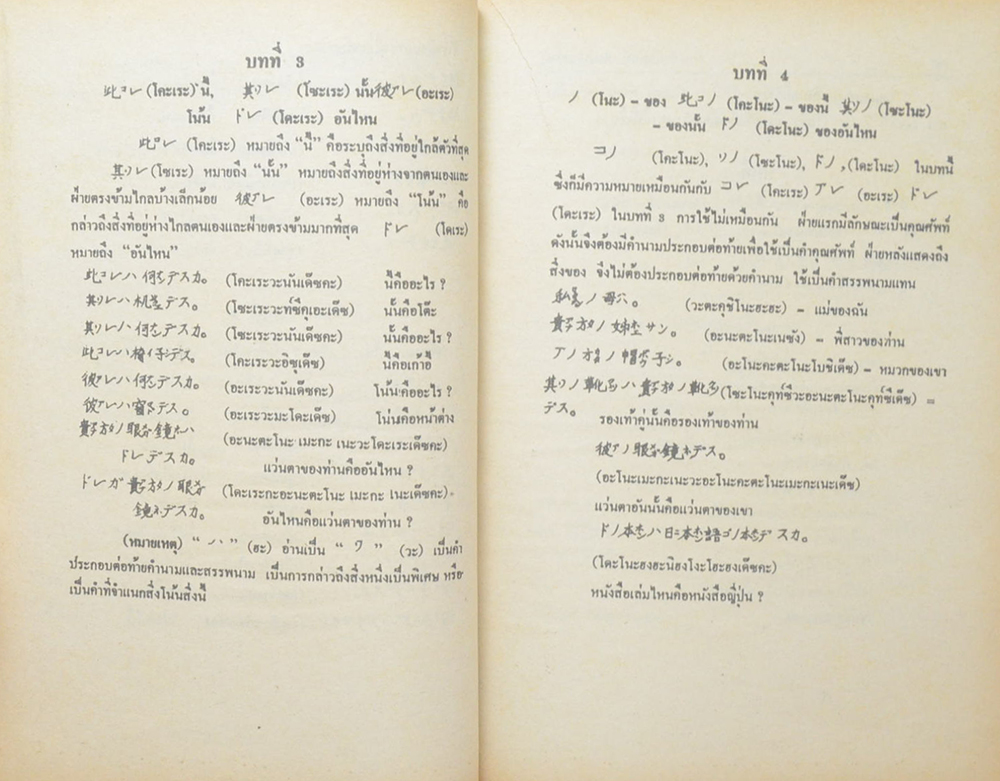 บทที่ 3
此コレ (โคะเระ) นี้, 其ソレ (โซะเระ) นั้น 彼アレ (อะเระ)
โน้น ドレ (โดะเระ) อันไหน
此コレ (โคะเระ) หมายถึง “นี้” คือระบุถึงสิ่งที่อยู่ใกล้ตัวที่สุด
其ソレ (โซเระ) หมายถึง “นั้น” หมายถึงสิ่งที่อยู่ห่างจากตนเองและ
ฝ่ายตรงข้ามไกลบ้างเล็กน้อย 彼アレ (อะเระ) หมายถึง “โน้น” คือ
กล่าวถึงสิ่งที่อยู่ห่างไกลตนเองและฝ่ายตรงข้ามมากที่สุด ドレ (โดเระ)
หมายถึง “อันไหน”
此コレハ何デスカ。 (โคะเระวะนันเด๊ซคะ) นี้คืออะไร ?
其ソレハ机デス。 (โซะเระวะท์ซึคุเอะเด๊ซ) นั้นคือโต๊ะ
其ソレハ何デスカ。 (โซะเระวะนันเด๊ซคะ) นั้นคืออะไร ?
此コレハ椅イ子シデス。 (โคะเระวะอิซุเด๊ซ) นี้คือเก้าอี้
彼アレハ何デスカ。 (อะเระวะนันเด๊ซคะ) โน้นคืออะไร ?
彼アレハ窓デス。 (อะเระวะมะโดะเด๊ซ) โน่นคือหน้าต่าง
貴方ノ眼鏡ハ (อะนะตะโนะ เมะกะ เนะวะโดะเระเด๊ซคะ)
ドレデスカ。 แว่นตาของท่านคืออันไหน ?
ドレガ貴方ノ眼 (โดะเระกะอะนะตะโนะ เมะกะ เนะเด๊ซคะ)
鏡デスカ。 อันไหนคือแว่นตาของท่าน ?
(หมายเหตุ) “ハ” (ฮะ) อ่านเป็น “ワ” (วะ) เป็นคำ
ประกอบต่อท้ายคำนามและสรรพนาม เป็นการกล่าวถึงสิ่งหนึ่งเป็นพิเศษ หรือ
เป็นคำที่จำแนกสิ่งโน้นสิ่งนี้
บทที่ 4
ノ (โนะ) – ของ 此コノ (โคะโนะ) – ของนี้ 其ソノ (โซะโนะ)
– ของนั้น ドノ (โดะโนะ) ของอันไหน
コノ (โคะโนะ), ソノ (โซะโนะ), ドノ, (โดะโนะ) ในบทนี้
ซึ่งก็มีความหมายเหมือนกันกับ コレ (โคะเระ) アレ (อะเระ) ドレ
(โดะเระ) ในบทที่ 3 การใช้ไม่เหมือนกัน ฝ่ายแรกมีลักษณะเป็นคุณศัพท์
ดังนั้นจึงต้องมีคำนามประกอบต่อท้ายเพื่อใช้เป็นคำคุณศัพท์ ฝ่ายหลังแสดงถึง
สิ่งของ จึงไม่ต้องประกอบต่อท้ายด้วยคำนาม ใช้เป็นคำสรรพนามแทน
私ノ母ハ。 (วะตะคุชิโนะฮะฮะ) – แม่ของฉัน
貴方ノ姉サン。 (อะนะตะโนะเนซัง) – พี่สาวของท่าน
アノ方ノ帽子。 (อะโนะคะตะโนะโบชิเด๊ซ) – หมวกของเขา
其ソノ靴ハ貴方ノ靴 (โซะโนะคุท์ซึวะอะนะตะโนะคุท์ซึเด๊ซ) =
デス。 รองเท้าคู่นั้นคือรองเท้าของท่าน
彼アノ眼鏡デス。
(อะโนะเมะกะเนะวะอะโนะคะตะโนะเมะกะเนะเด๊ซ)
แว่นตาอันนั้นคือแว่นตาของเขา
ドノ本ハ日本語ゴノ本デスカ。
(โดะโนะฮงฮะนิฮงโงะโฮะฮงเด๊ซคะ)
หนังสือเล่มไหนคือหนังสือญี่ปุ่น ?